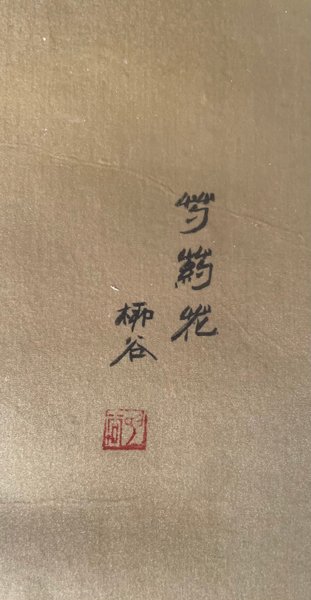 芍葯花
柳谷